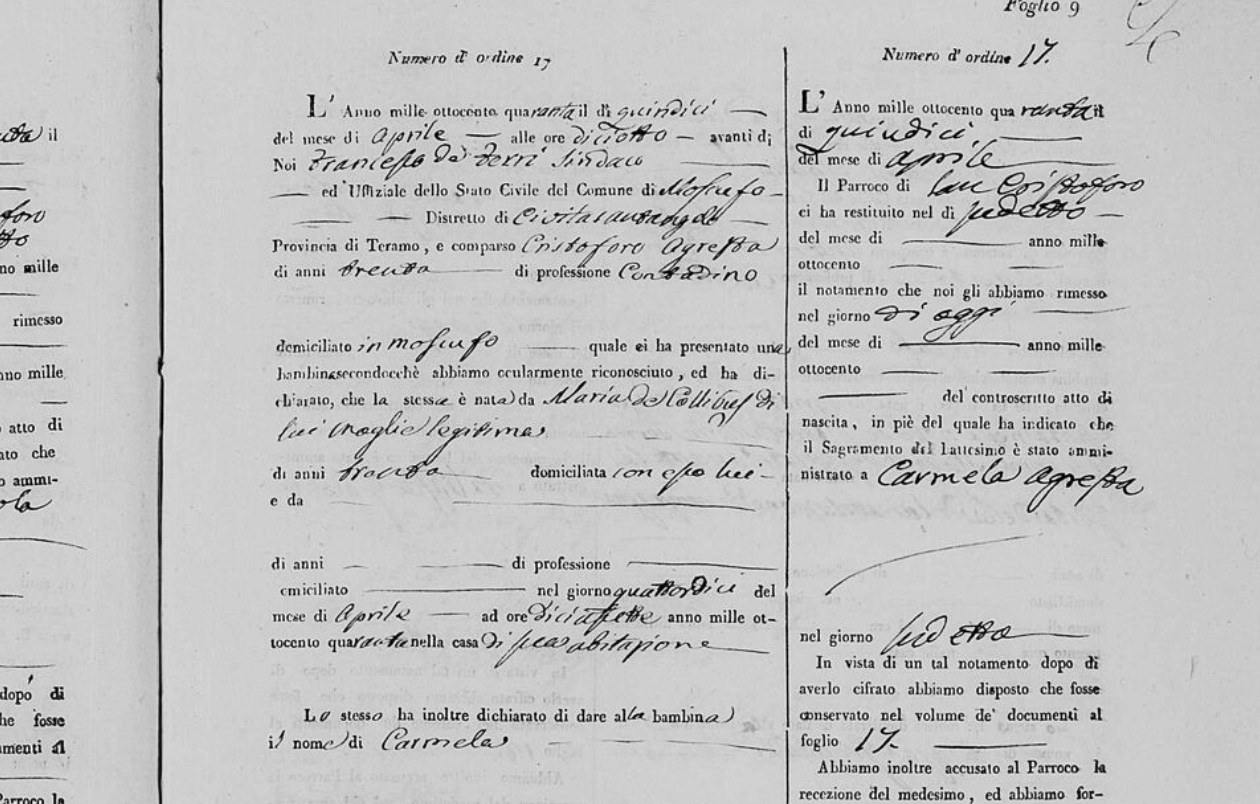 Foglio 9
Numero d' ordine 17
L' Anno mille ottocento quaranta il di quindici
del mese di Aprile alle ore diciotto avanti di
Noi Francesco de Sindaco
ed Uffiziale dello Stato Civile del Comune di Moscufo
Distretto di Civitasantangelo
Provincia di Teramo, e comparso Cristoforo Agresta
di anni trenta di professione Contadino
domiciliato in Moscufo quale ci ha presentato una
bambina secondocchè abbiamo ocularmente riconosciuto, ed ha di-
chiarato, che la stessa è nata da Maria de Collibus di
lui moglie legittima
di anni trenta domiciliata con esso lui
e da
di anni di professione
cmiciliato nel giorno quattordici del
mese di Aprile ad ore diciassette anno mille ot-
tocento quaranta nella casa di sua abitazione
Lo stesso ha inoltre dichiarato di dare alla bambina
il nome di Carmela
Numero d' ordine 17.
L' Anno mille ottocento quaranta il
di quindici
del mese di aprile
Il Parroco di San Cristoforo
ci ha restituito nel di sudetto
del mese di anno mille
ottocento
il notamento che noi gli abbiamo rimesso
nel giorno di oggi
del mese di anno mille
ottocento
del controscritto atto di
nascita, in piè del quale ha indicato che
il Sagramento del Battesimo è stato ammi-
nistrato a Carmela Agresta
nel giorno sudetto
In vista di un tal notamento dopo di
averlo cifrato abbiamo disposto che fosse
conservato nel volume de' documenti al
foglio 17.
Abbiamo inoltre accusato al Parroco la
recezione del medesimo, ed abbiamo for-
il
no mille
rimesso
no mille
atto di
ato che
ammi-
dopo di
he fosse
menti al
Parroco la